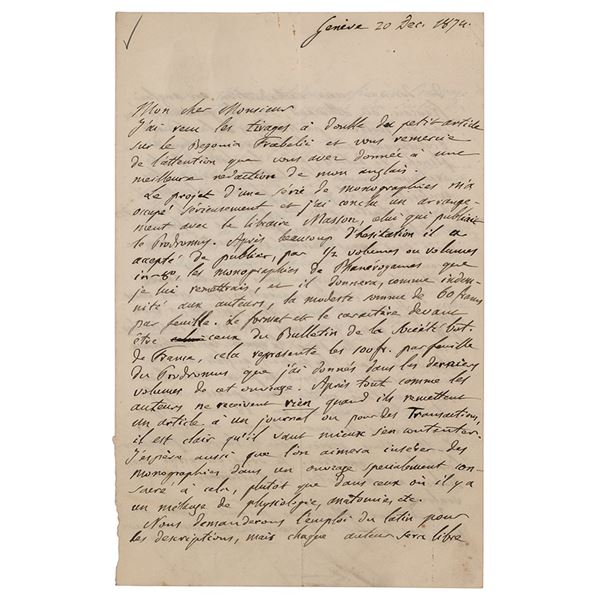 Genève 20 Dec. 1874.
Mon cher Monsieur
J'ai reçu les tirages à double du petit article
sur le Begonia Froebelii et vous remercie
de l'attention que vous avez donnée à une
meilleure rédaction de mon anglais.
Le projet d'une série de monographies m'a
occupé sérieusement et j'ai conclu un arrange-
ment avec le libraire Masson, celui qui publiait
le Prodromus. Après beaucoup d'hésitation il a
accepté de publier, par 1/2 volumes ou volumes
in-80, les monographies de Phanérogames que
je lui remettrais, et il donnera, comme indem-
nité aux auteurs, la modeste somme de 60 francs
par feuille. Le format et le caractère devant
être ceux du Bulletin de la Société bot.
de France, cela représente les 100 fr. par feuille
du Prodromus que j'ai donnés dans les derniers
volumes de cet ouvrage. Après tout comme les
auteurs ne reçoivent rien quand ils remettent
un article à un journal ou pour des Transactions,
il est clair qu'il vaut mieux s'en contenter.
J'espère aussi que l'on aimera insérer des
monographies dans un ouvrage spécialement con-
sacré à cela, plutot que dans ceux où il y a
un mélange de physiologie, anatomie, etc.
Nous demanderons l'emploi du latin pour
les descriptions, mais chaque auteur sera libre